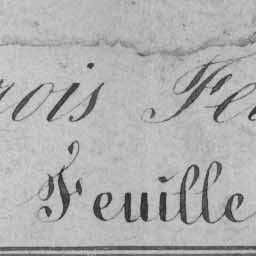 rois Fe
Feuille